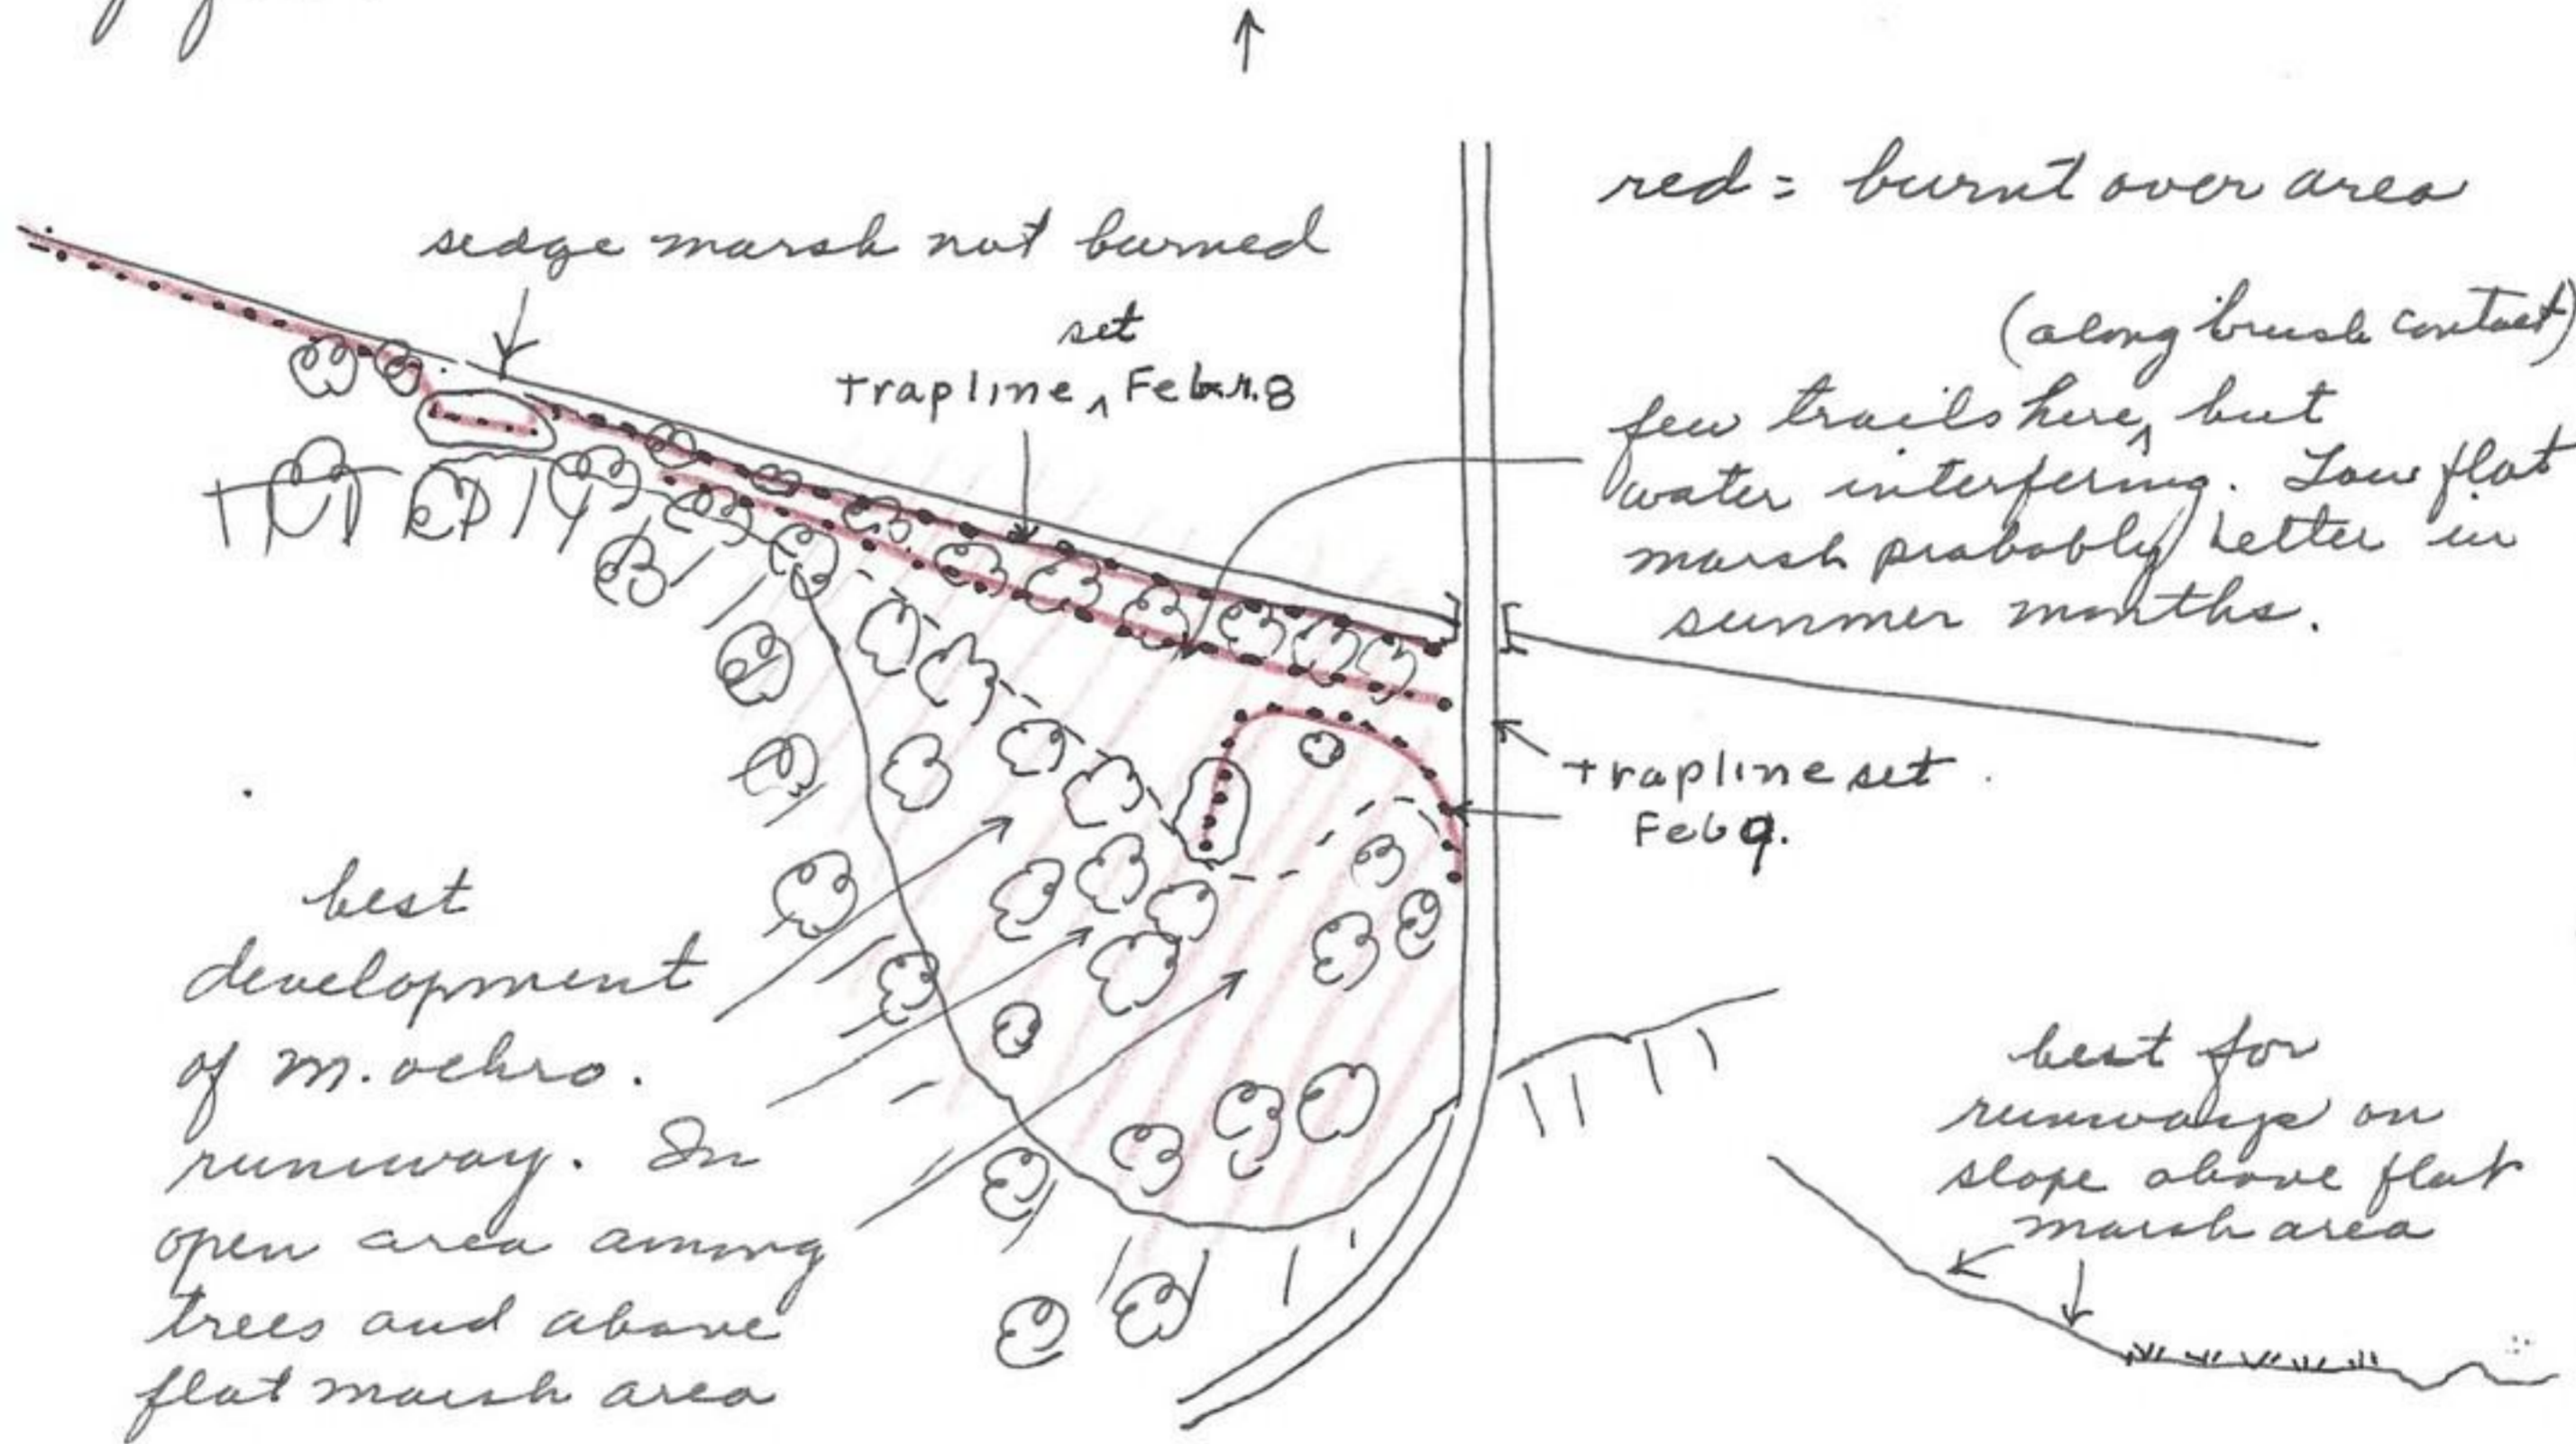 red = burnt over area
sedge marsh not burned
set
Trapline ^ Feb 8
(along brush contact)
few trails here ^, but
water interfering. Low flat
marsh probably better in
summer months.
trapline set
Feb 9.
best
development
of m. ochro.
runway. In
open area among
trees and above
flat marsh area
best for
runways on
slope above flat
marsh area